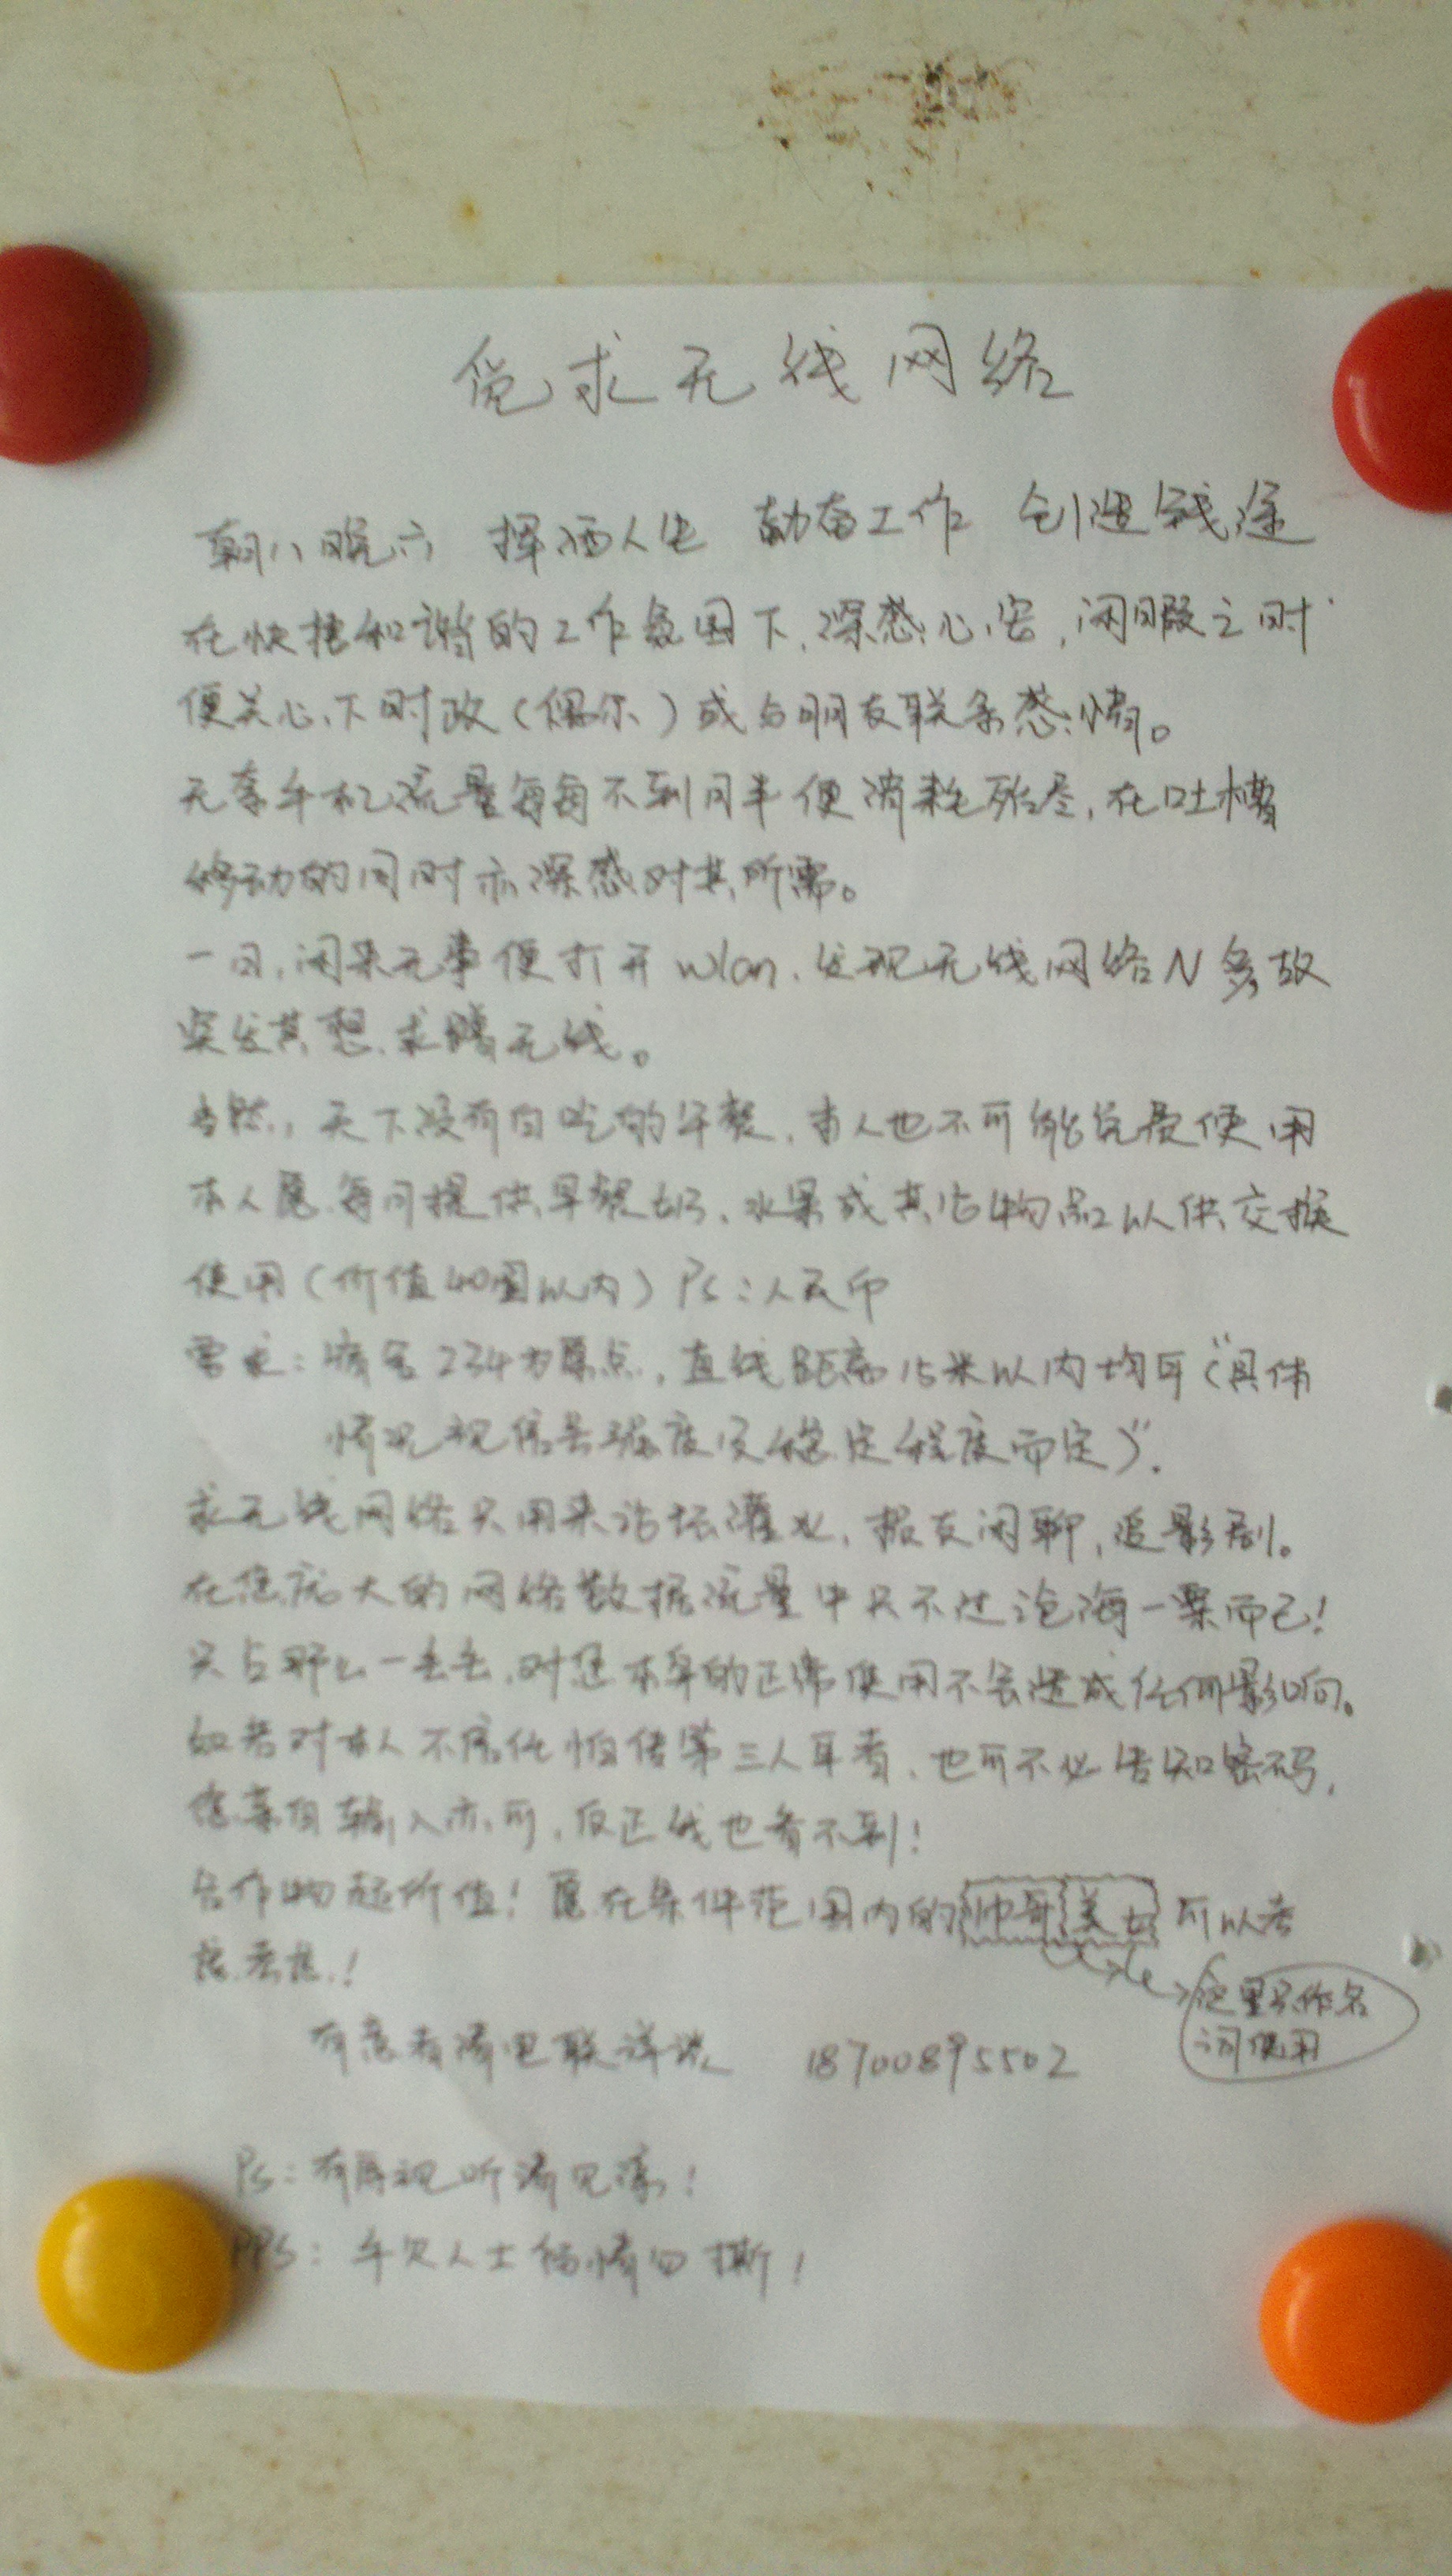 觅求无线网络
朝八晚六 挥洒人生 勤奋工作 创造钱途
在快捷和谐的工作氛围下,深感心安,闲暇之时
便关心下时政(偶尔)或与朋友联系感情。
无奈手机流量每每不到月半便消耗殆尽,在吐槽
移动的同时亦深感对其所需。
一日,闲来无事便打开wlan,发现无线网络N多故
突发其想,求购无线。
当然,天下没有白吃的午餐,本人也不可能免费使用
本人愿每月提供早餐奶、水果或其他物品以供交换
使用(价值40圆以内)Ps:人民币
需求:宿舍234为原点,直线距离15米以内均可“(具体
情况视信号强度及稳定程度而定)”.
求无线网络只用来论坛灌水,损友闲聊,追影剧。
在您庞大的网络数据流量中只不过沧海一粟而已!
只占那么一丢丢,对您本身的正常使用不会造成任何影响。
如若对本人不信任怕传第三人耳者,也可不必告知密码,
您亲自输入亦可,反正我也看不到!
合作创造价值!愿在条件范围内的帅哥美女可以考
虑考虑!
这里只作名
词使用
有意者请电联详谈 18700895502
Ps:有辱视听请见谅!
PPS:手欠人士留情勿撕!